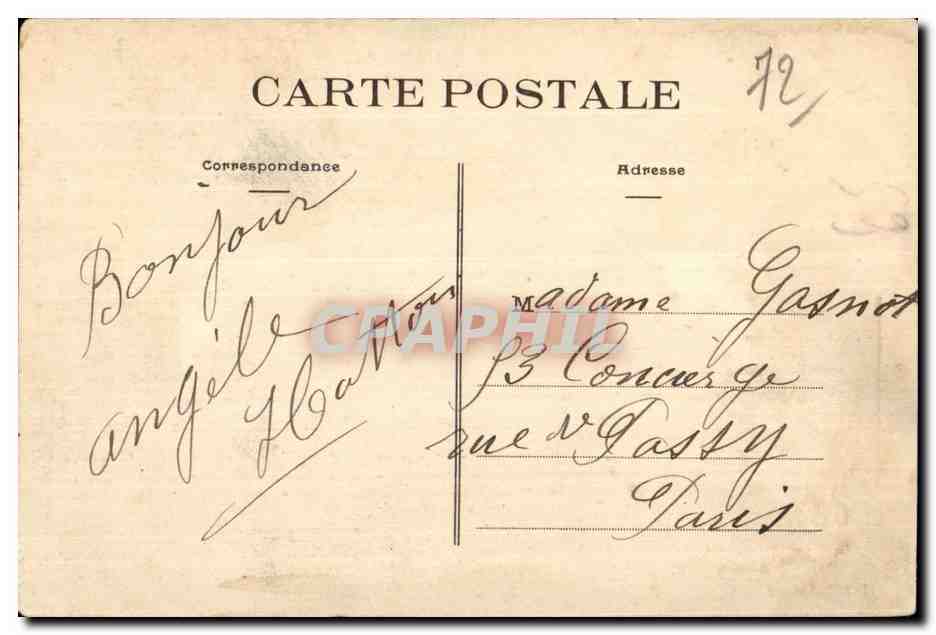 CARTE POSTALE
72
Correspondance
Adresse
Bonjour
angéle
Madame Gasnot
53 Concierge
rue de Passy
Paris
CPAPHIL